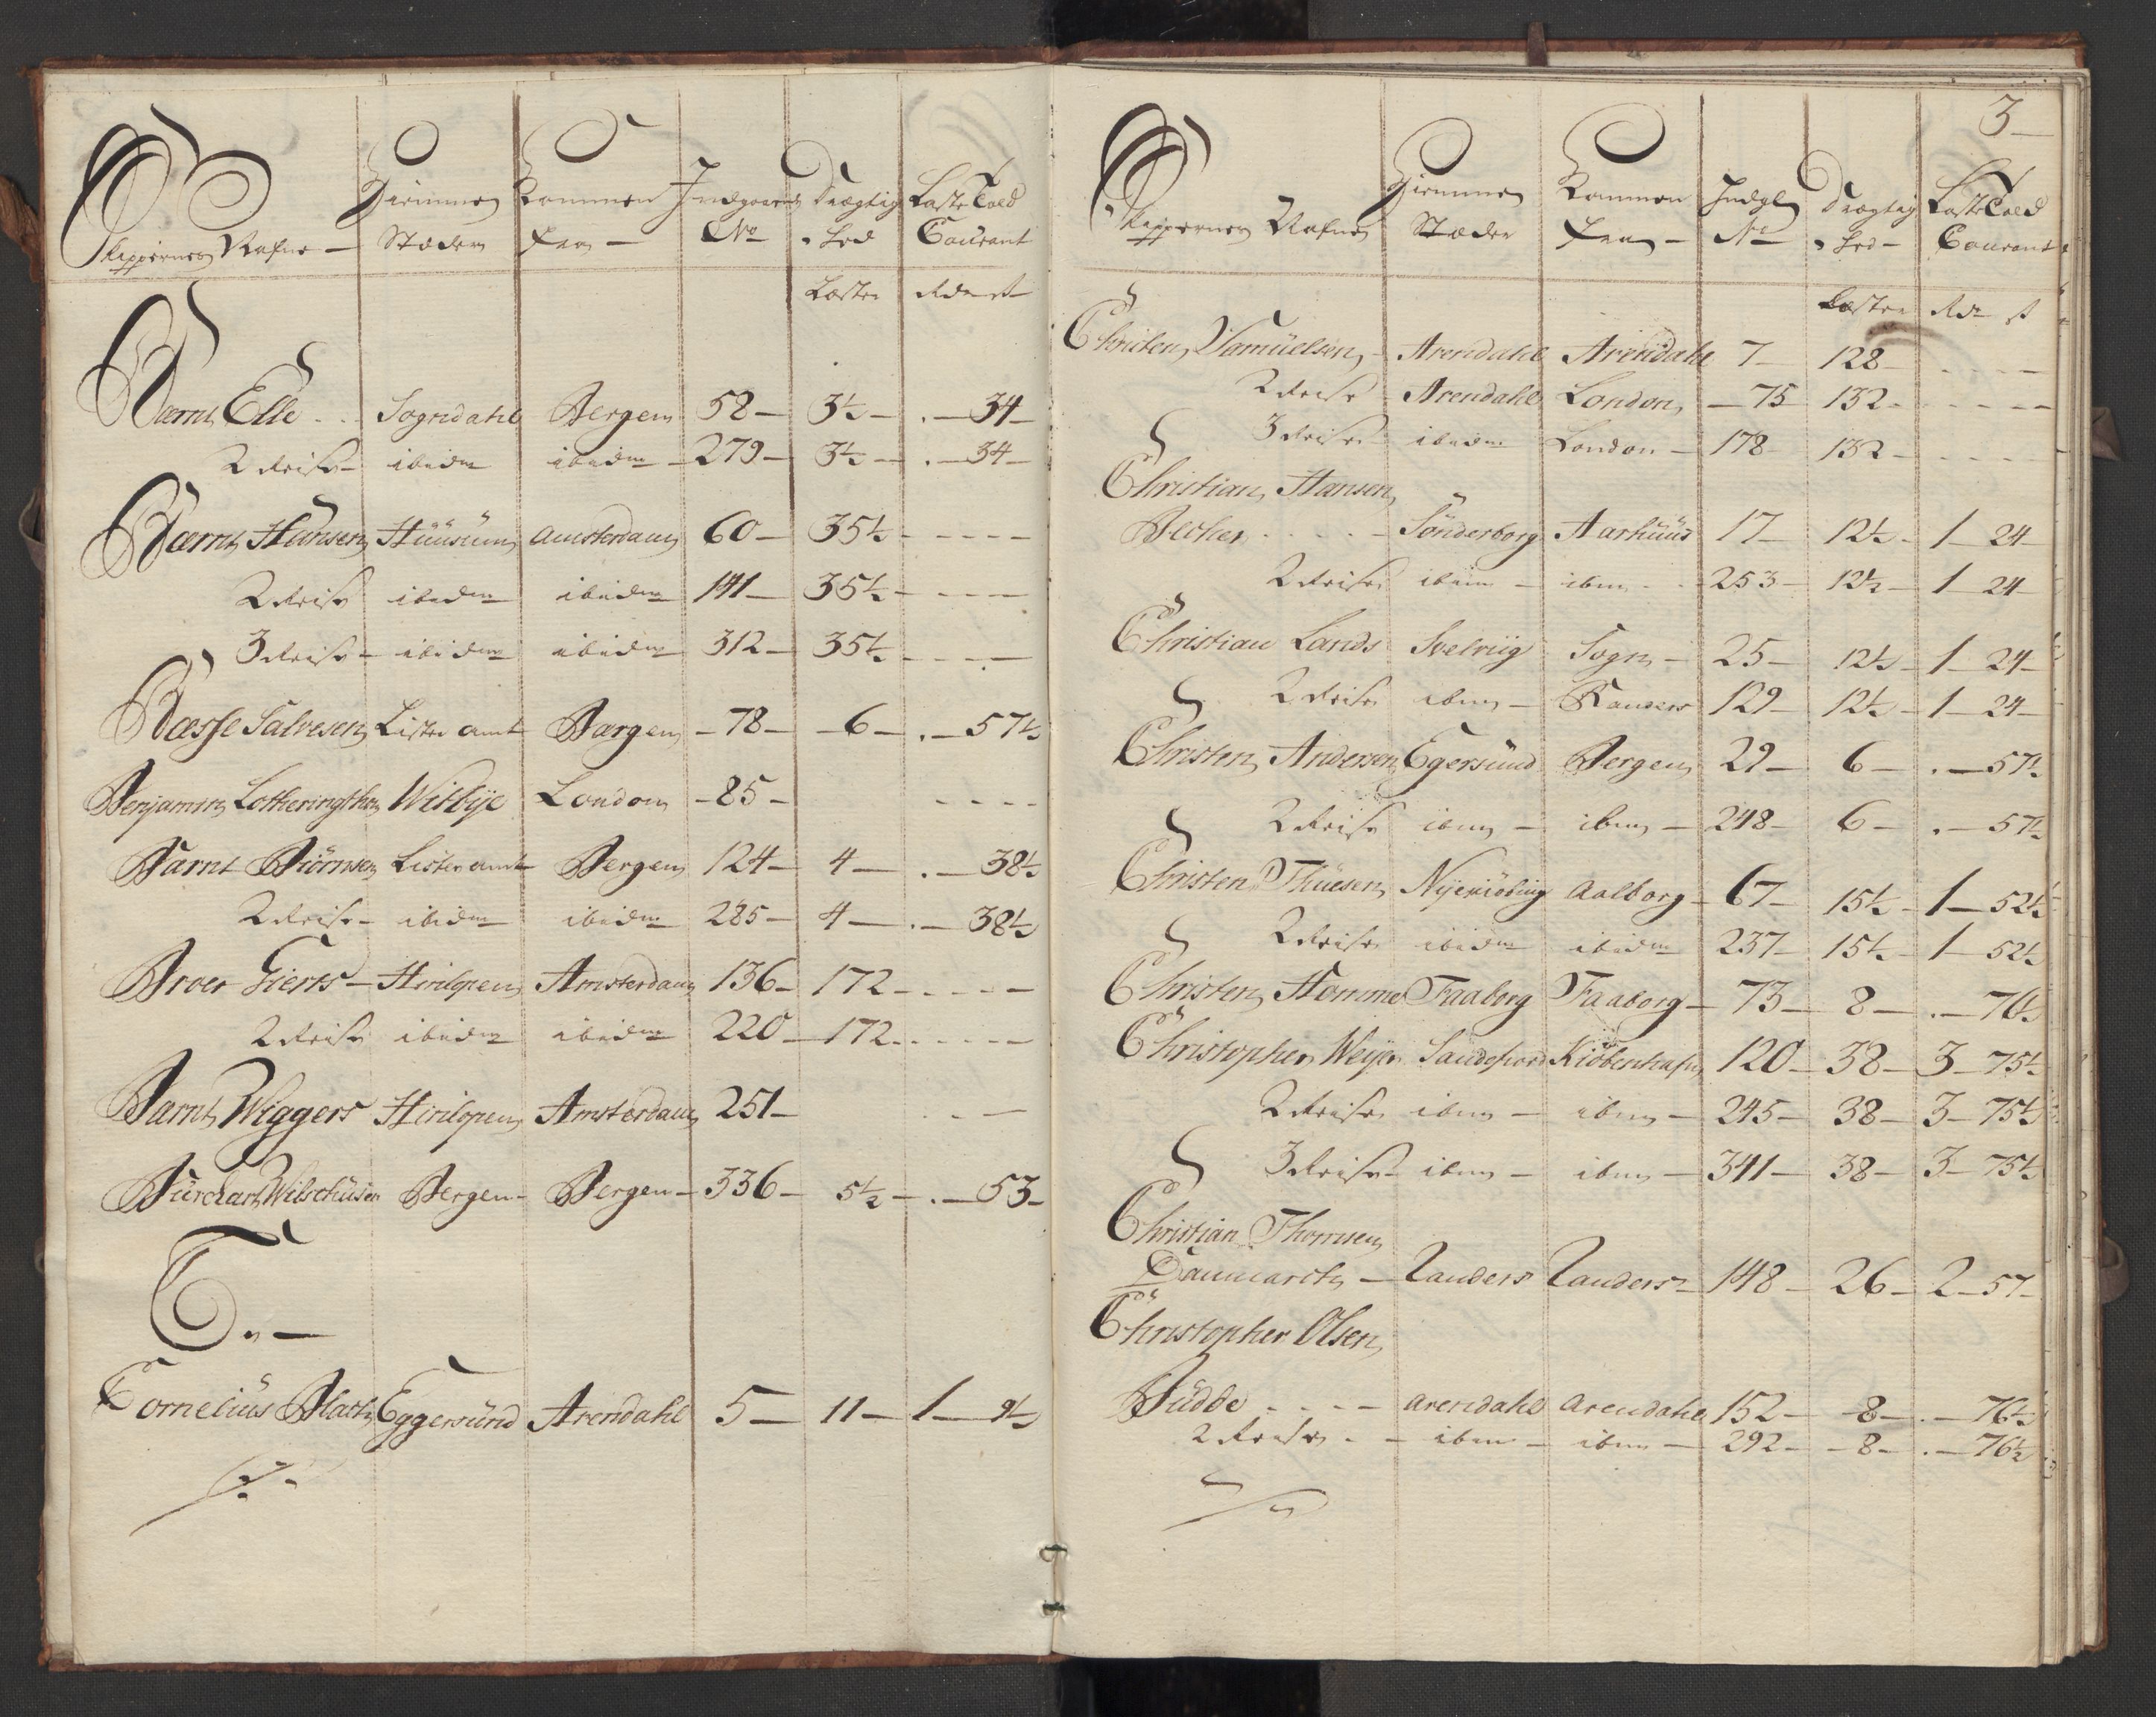 Skippernes Nafne — Hiemme Stæder Kommen Fra — Indgaaend No Drægtighed Læste Told Courant
Læster Rdr ß
Baernt Elle . . Sogndahl Bergen 58 — 3½ — . — 34 —
2 Reise — ibidm ibidm — 279 — 3½ — . — 34 —
Baernt Hansen Hüüsüm Amsterdam 60 — 35½ - - - -
2 Reise ibidm ibidm 141 — 35½ - - - -
3 Reise — ibidm ibidm 312 — 35½ - - - -
Basse Salvesen Lister amt Bargen — 78 — 6 — . — 57½
Benjamin Lotheringthon Witbye London — 85 — - - - -
Barnt Biörnsen Lister amt Bergen 124 — 4 — . — 38½
2 Reise — ibidm ibidm 285 — 4 — . — 38½
Broer Gierts — Hinlopen Amsterdam 136 — 172 - - - -
2 Reise ibidm ibidm 220 — 172 - - - -
Barnt Wiggers Hinlopen Amsterdam 251 — - - -
Bürchart Wilschüsen Bergen — Bergen — 336 — 5½ — . — 53 —
C. —
Cornelius Platt Eggersünd Arendahl 5 — 11 — 1 — 9½
3 —
Skippernes Nafne Hiemme Stæder Kommen Fra — Indgl No Drægtighed — Læste Told Courant
Læster Rdr ß
Christen Samüelsen — Arendahl Arendahl 7 — 128 — - - - -
2 Reise Arendahl London — 75 132 - - - - -
3 Reise — ibidm London — 178 132 - - - - -
Christian Hansen
Becher - - - - Sönderborg Aarhüüs 17 — 12½ — 1 — 24 —
2 Reise ibm — ibm — 253 — 12½ — 1 — 24 —
Christian Lands Svelviig Sogn — 25 — 12½ — 1 — 24 —
2 Reise ibm — Randers 129 — 12½ — 1 — 24 —
Christen Andersen Egersünd Bergen 29 — 6 — . — 57½
2 Reise ibm — ibm — 248 — 6 — . — 57½
Christen Thüesen Nyekiöbing Aalborg — 67 — 15½ — 1 — 52½
2 Reise ibidm ibidm 237 — 15½ — 1 — 52½
Christen Homme Faaborg Faaborg — 73 — 8 — . — 76½
Christopher Weyer Sandefiord Kiöbenhafn 120 — 38 — 3 — 75½
2 Reise ibm — ibm — 245 — 38 — 3 — 75½
3 Reise — ibm — ibm — 341 — 38 — 3 — 75½
Christian Thomsen
Danmarch — Randers Randers — 148 — 26 — 2 — 57 —
Christopher Olsen
Büdde - - - - Arendahl Arendahl 152 — 8 — . — 76½
2 Reise - - ibm — ibm — 292 — 8 — . — 76½